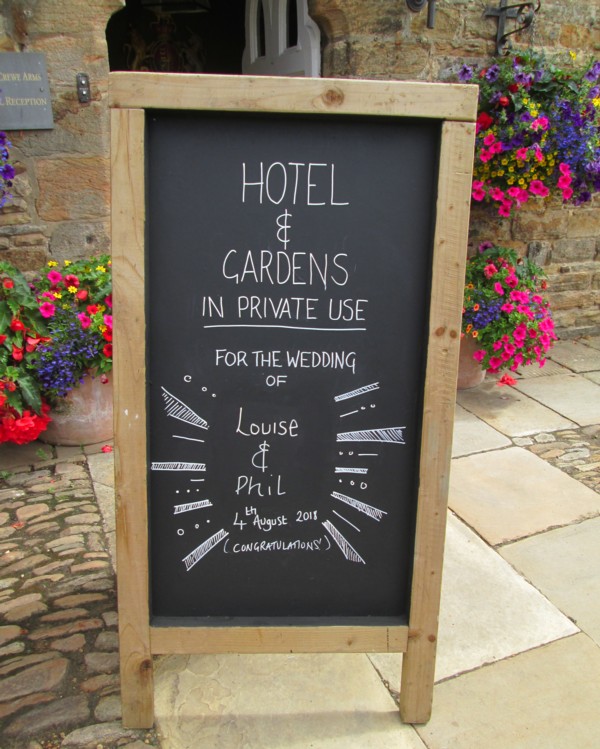 Crewe Arms
Reception
HOTEL
&
GARDENS
IN PRIVATE USE
FOR THE WEDDING
OF
Louise
&
Phil
4th August 2018
(CONGRATULATIONS')